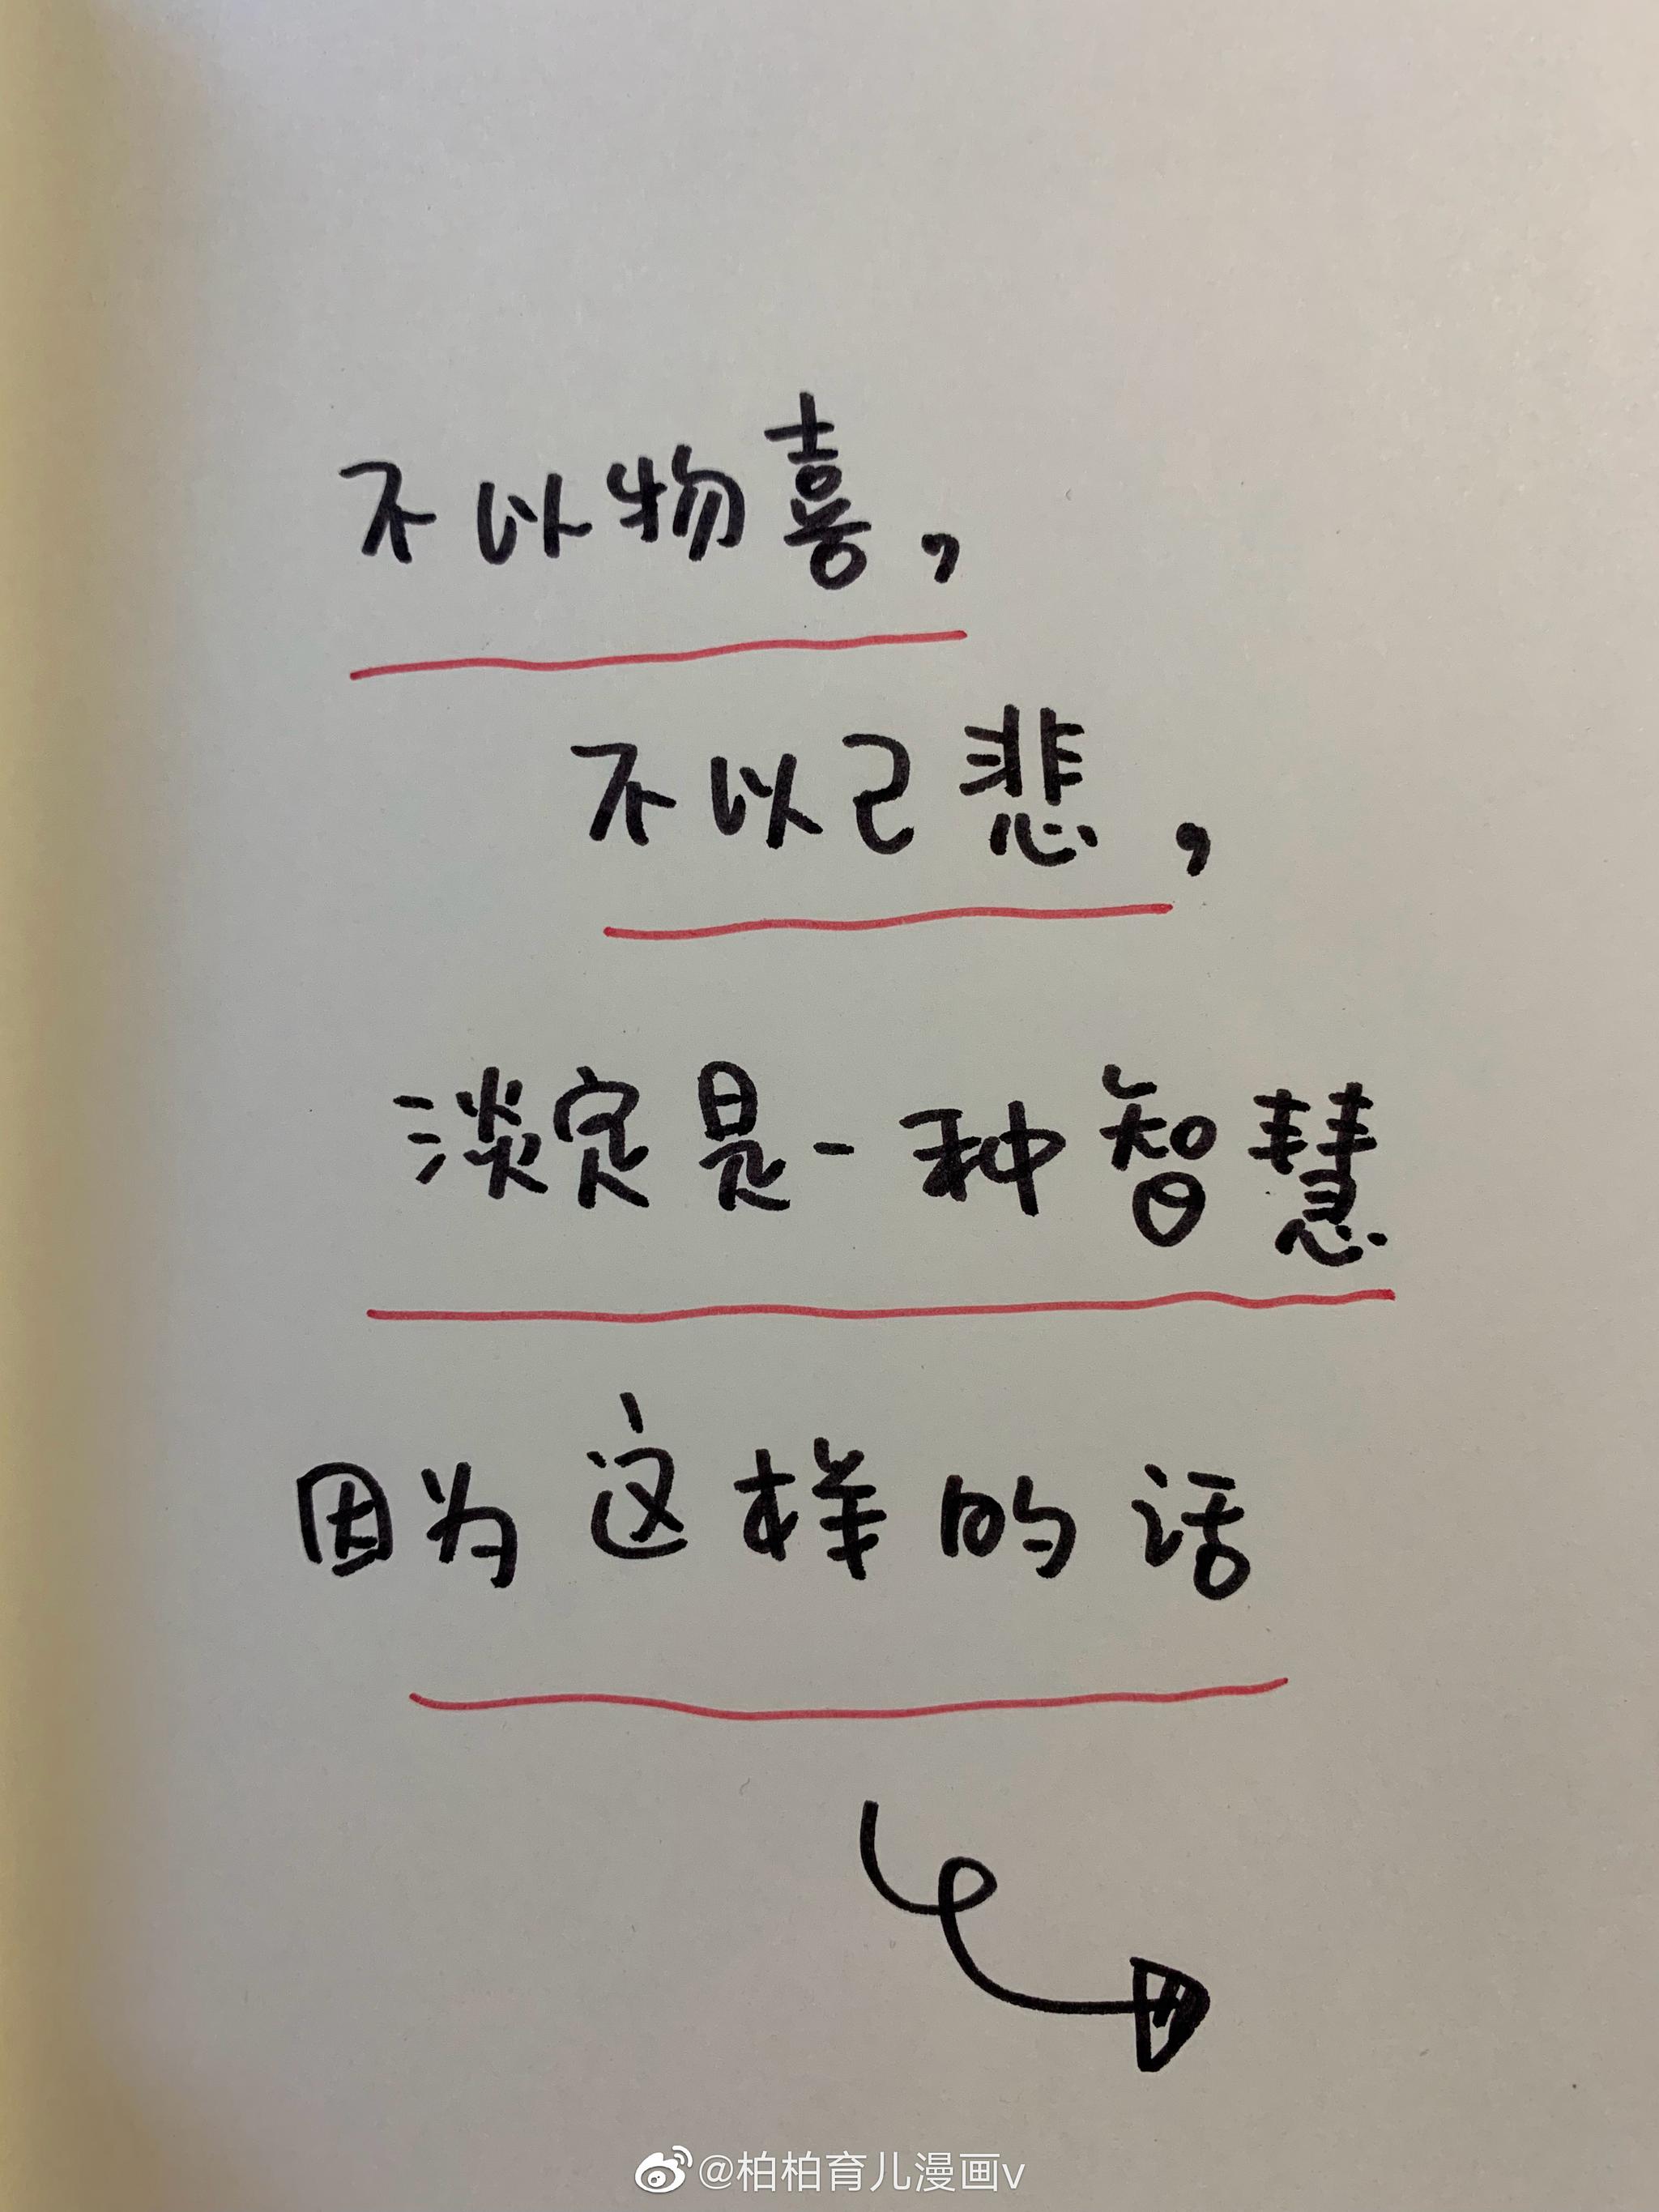 不以物喜，
不以己悲，
淡定是一种智慧
因为这样的话
@柏柏育儿漫画v